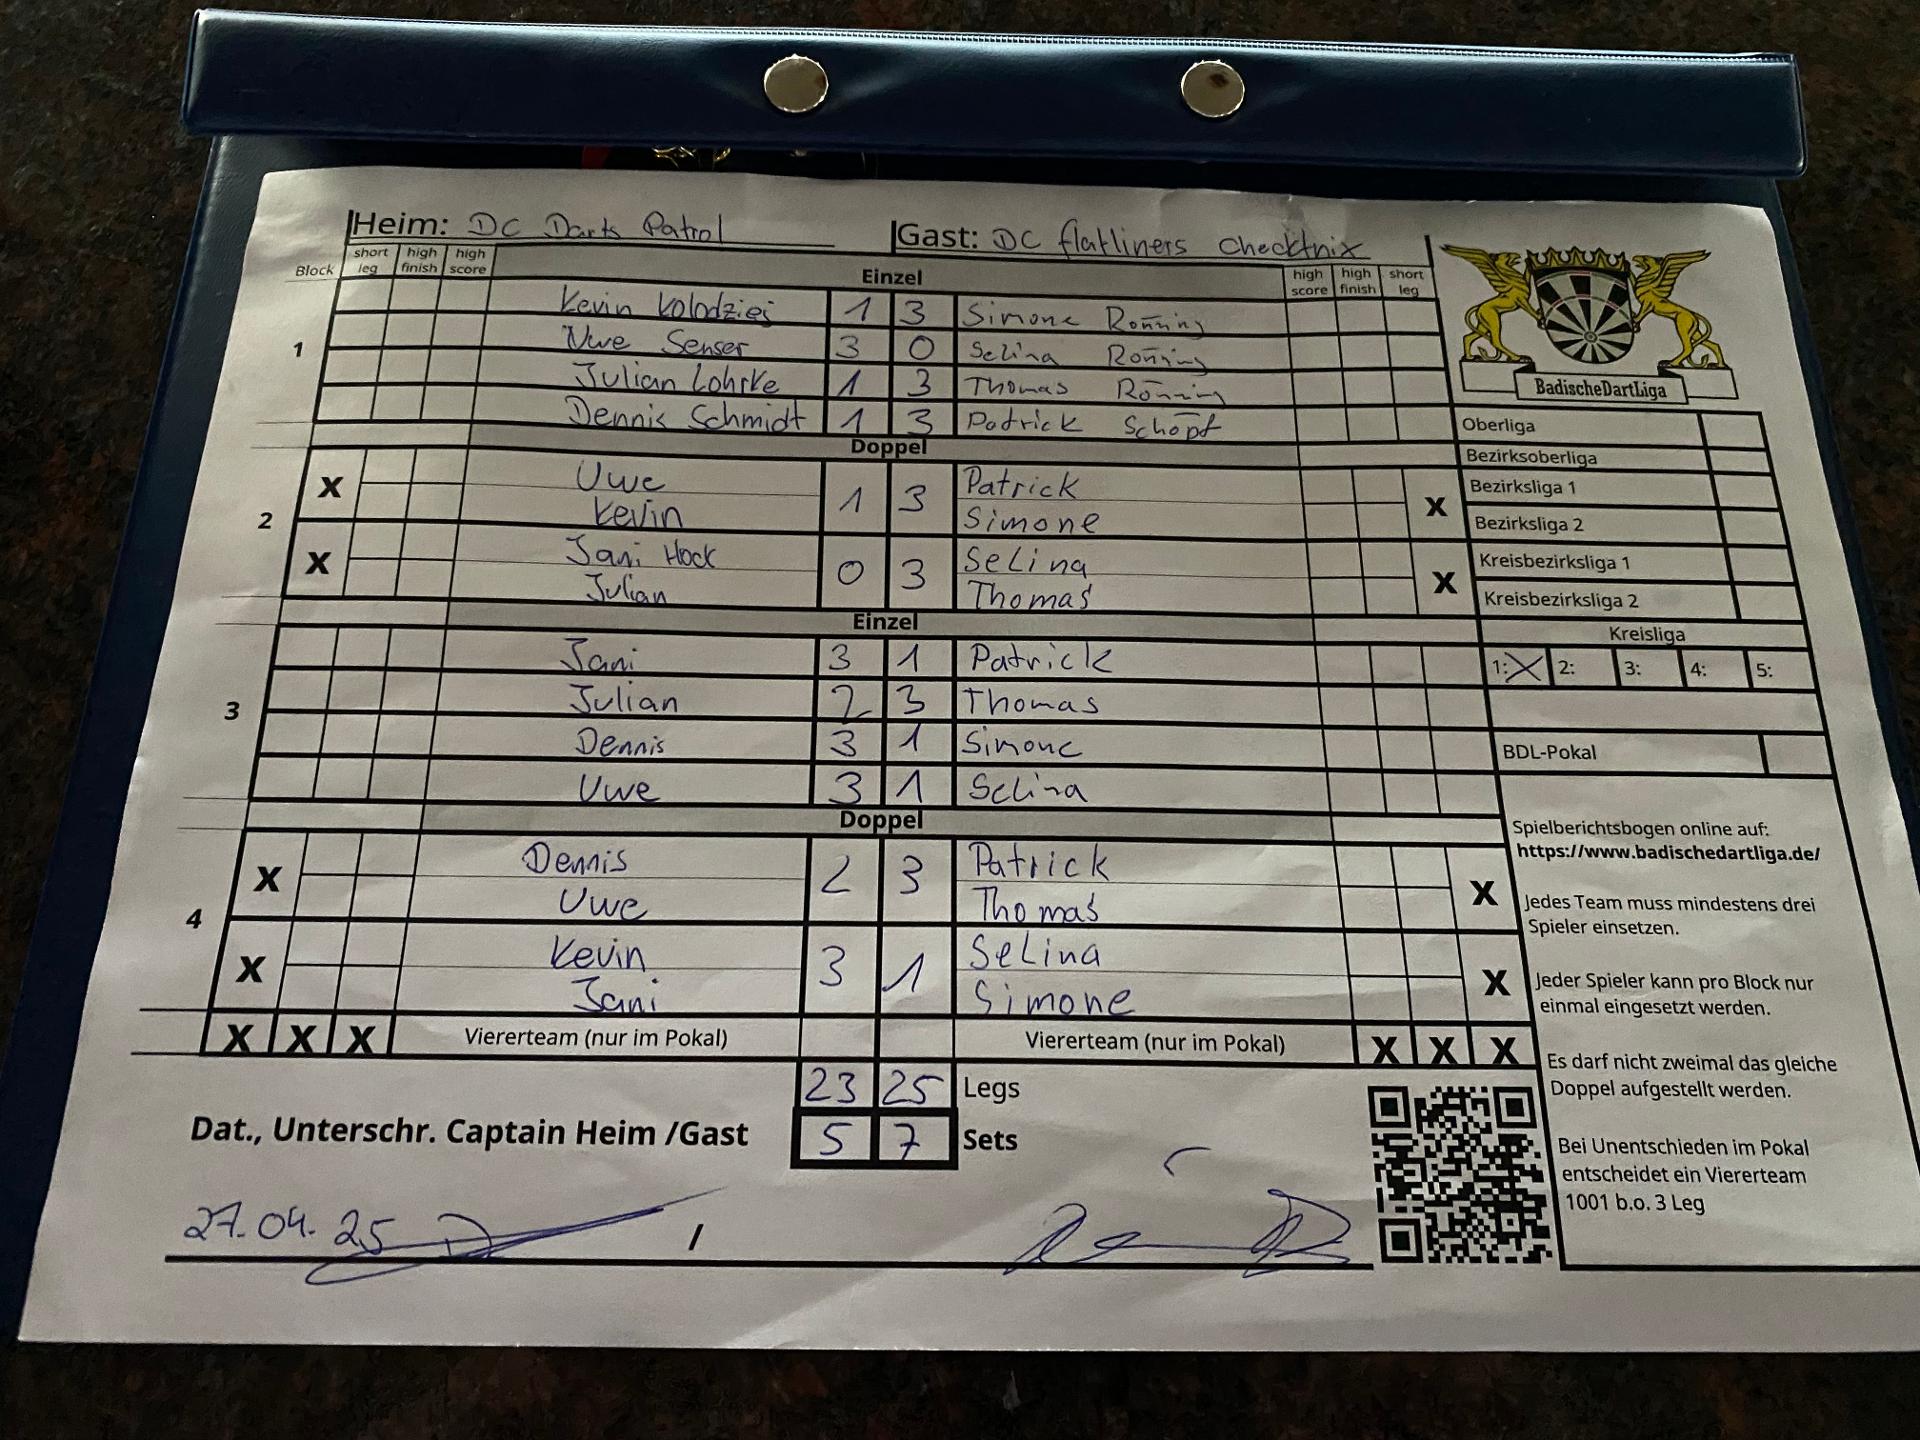 Heim: DC Darts Patrol Gast: DC flatliners checktnix
Block short leg high finish high score Einzel high score high finish short leg
1
Kevin Kolodziej 1 3 Simone Rönning
Uwe Senser 3 0 Selina Rönning
Julian Lohrke 1 3 Thomas Rönning
Dennis Schmidt 1 3 Patrick Schöpf
Doppel
2
X Uwe 1 3 Patrick X
Kevin Simone
X Jani Hock 0 3 Selina X
Julian Thomas
Einzel
3
Jani 3 1 Patrick
Julian 2 3 Thomas
Dennis 3 1 Simone
Uwe 3 1 Selina
Doppel
4
X Dennis 2 3 Patrick X
Uwe Thomas
X Kevin 3 1 Selina X
Jani Simone
X X X Viererteam (nur im Pokal) Viererteam (nur im Pokal) X X X
23 25 Legs
Dat., Unterschr. Captain Heim /Gast 5 7 Sets
27.04.25 /
BadischeDartLiga
Oberliga
Bezirksoberliga
Bezirksliga 1
Bezirksliga 2
Kreisbezirksliga 1
Kreisbezirksliga 2
Kreisliga
1: X 2: 3: 4: 5:
BDL-Pokal
Spielberichtsbogen online auf:
https://www.badischedartliga.de/
Jedes Team muss mindestens drei
Spieler einsetzen.
Jeder Spieler kann pro Block nur
einmal eingesetzt werden.
Es darf nicht zweimal das gleiche
Doppel aufgestellt werden.
Bei Unentschieden im Pokal
entscheidet ein Viererteam
1001 b.o. 3 Leg